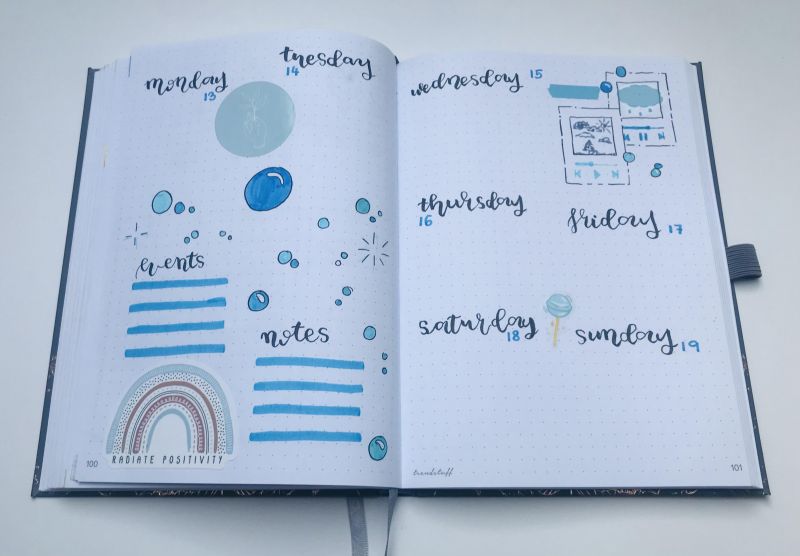 monday
13
tuesday
14
events
notes
RADIATE POSITIVITY
100
wednesday 15
thursday
16
friday 17
saturday
18
sunday 19
trendstuff
101